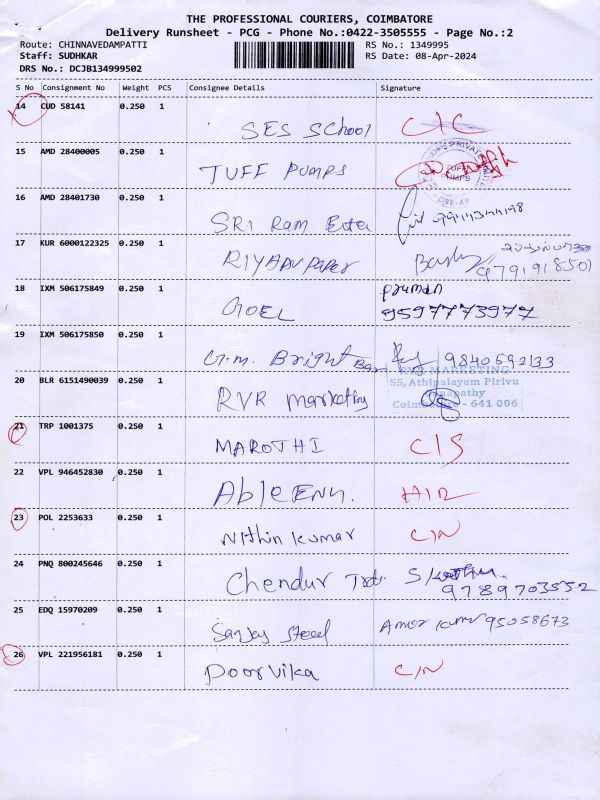 THE PROFESSIONAL COURIERS, COIMBATORE
Delivery Runsheet - PCG - Phone No.:0422-3505555 - Page No.:2
Route: CHINNAVEDAMPATTI
RS No.: 1349995
Staff: SUDHKAR
RS Date: 08-Apr-2024
DRS No.: DCJB134999502
S No Consignment No Weight PCS Consignee Details Signature
14 CUD 58141 0.250 1
SES School C/C
15 AMD 28400005 0.250 1
TUFF PUMPS
16 AMD 28401730 0.250 1
SRI Ram
17 KUR 6000122325 0.250 1
paper 9791918501
18 IXM 506175849 0.250 1
GOEL 9597773977
19 IXM 506175850 0.250 1
G.M. Bright 9840592133
RVR MARKETING
55, Athipalayam Pirivu
Ganapathy
Coimbatore - 641 006
20 BLR 6151490039 0.250 1
RVR marketing
21 TRP 1001375 0.250 1
MAROTHI C/S
22 VPL 946452830 0.250 1
Able ENN.
23 POL 2253633 0.250 1
Nithin kumar C/N
24 PNQ 800245646 0.250 1
Chendur 9789703552
25 EDQ 15970209 0.250 1
Sanjay Steel 95058673
26 VPL 221956181 0.250 1
Poorvika C/N